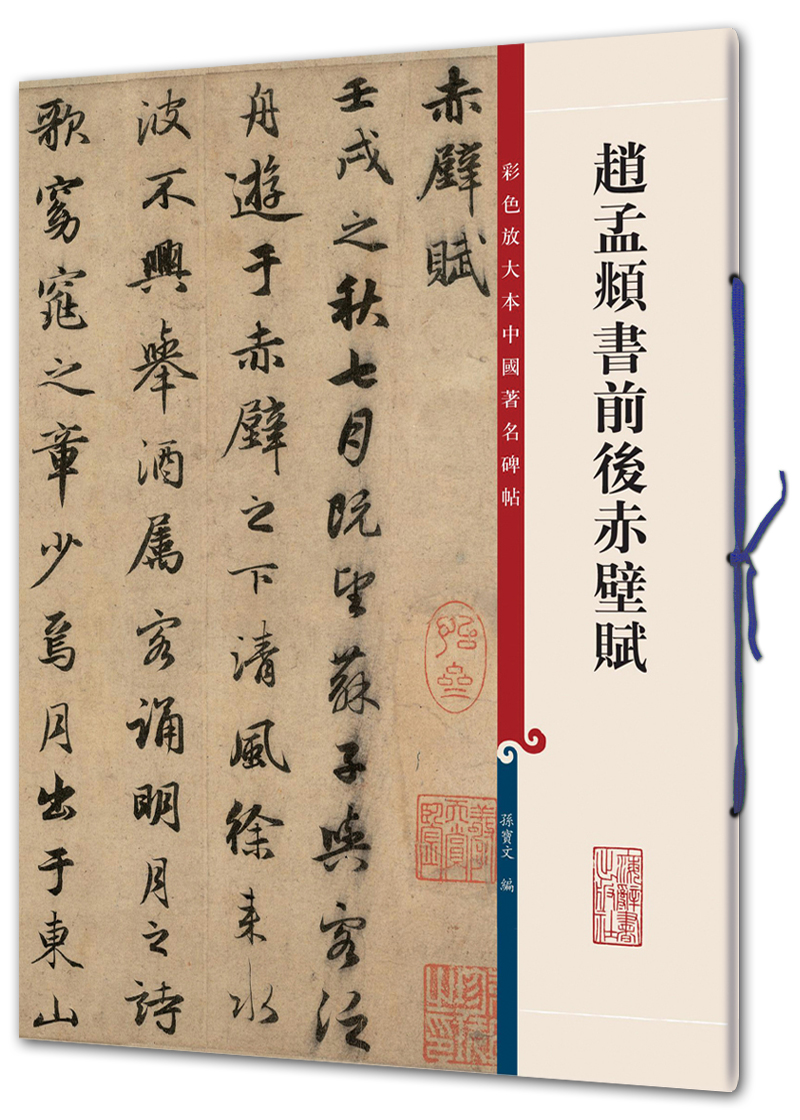 趙孟頫書前後赤壁賦
海辭書
出版社
彩色放大本中國著名碑帖
孫寶文 編
赤壁賦
壬戌之秋七月既望蘇子與客泛
舟遊于赤壁之下清風徐来水
波不興舉酒属客誦明月之詩
歌窈窕之章少焉月出于東山